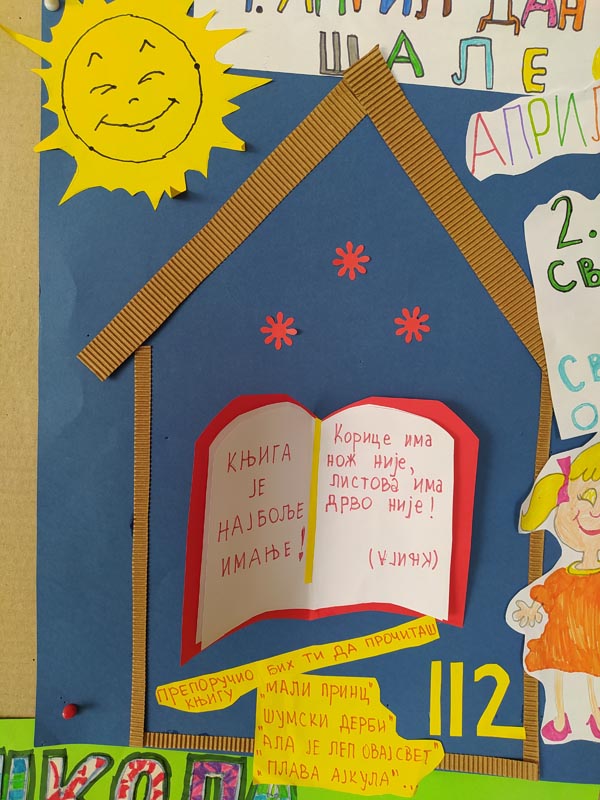 1. АПРИЛ ДАН
ШАЛЕ
АПРИЛ
2.
СВ
СВ
О
КЊИГА
ЈЕ
НАЈБОЉЕ
ИМАЊЕ!
Корице има
нож није,
листова има
дрво није!
(КЊИГА)
ПРЕПОРУЧИО БИХ ТИ ДА ПРОЧИТАШ
КЊИГУ
"МАЛИ ПРИНЦ"
"ШУМСКИ ДЕРБИ"
"АЛА ЈЕ ЛЕП ОВАЈ СВЕТ"
"ПЛАВА АЈКУЛА"...
112
ШКОЛА